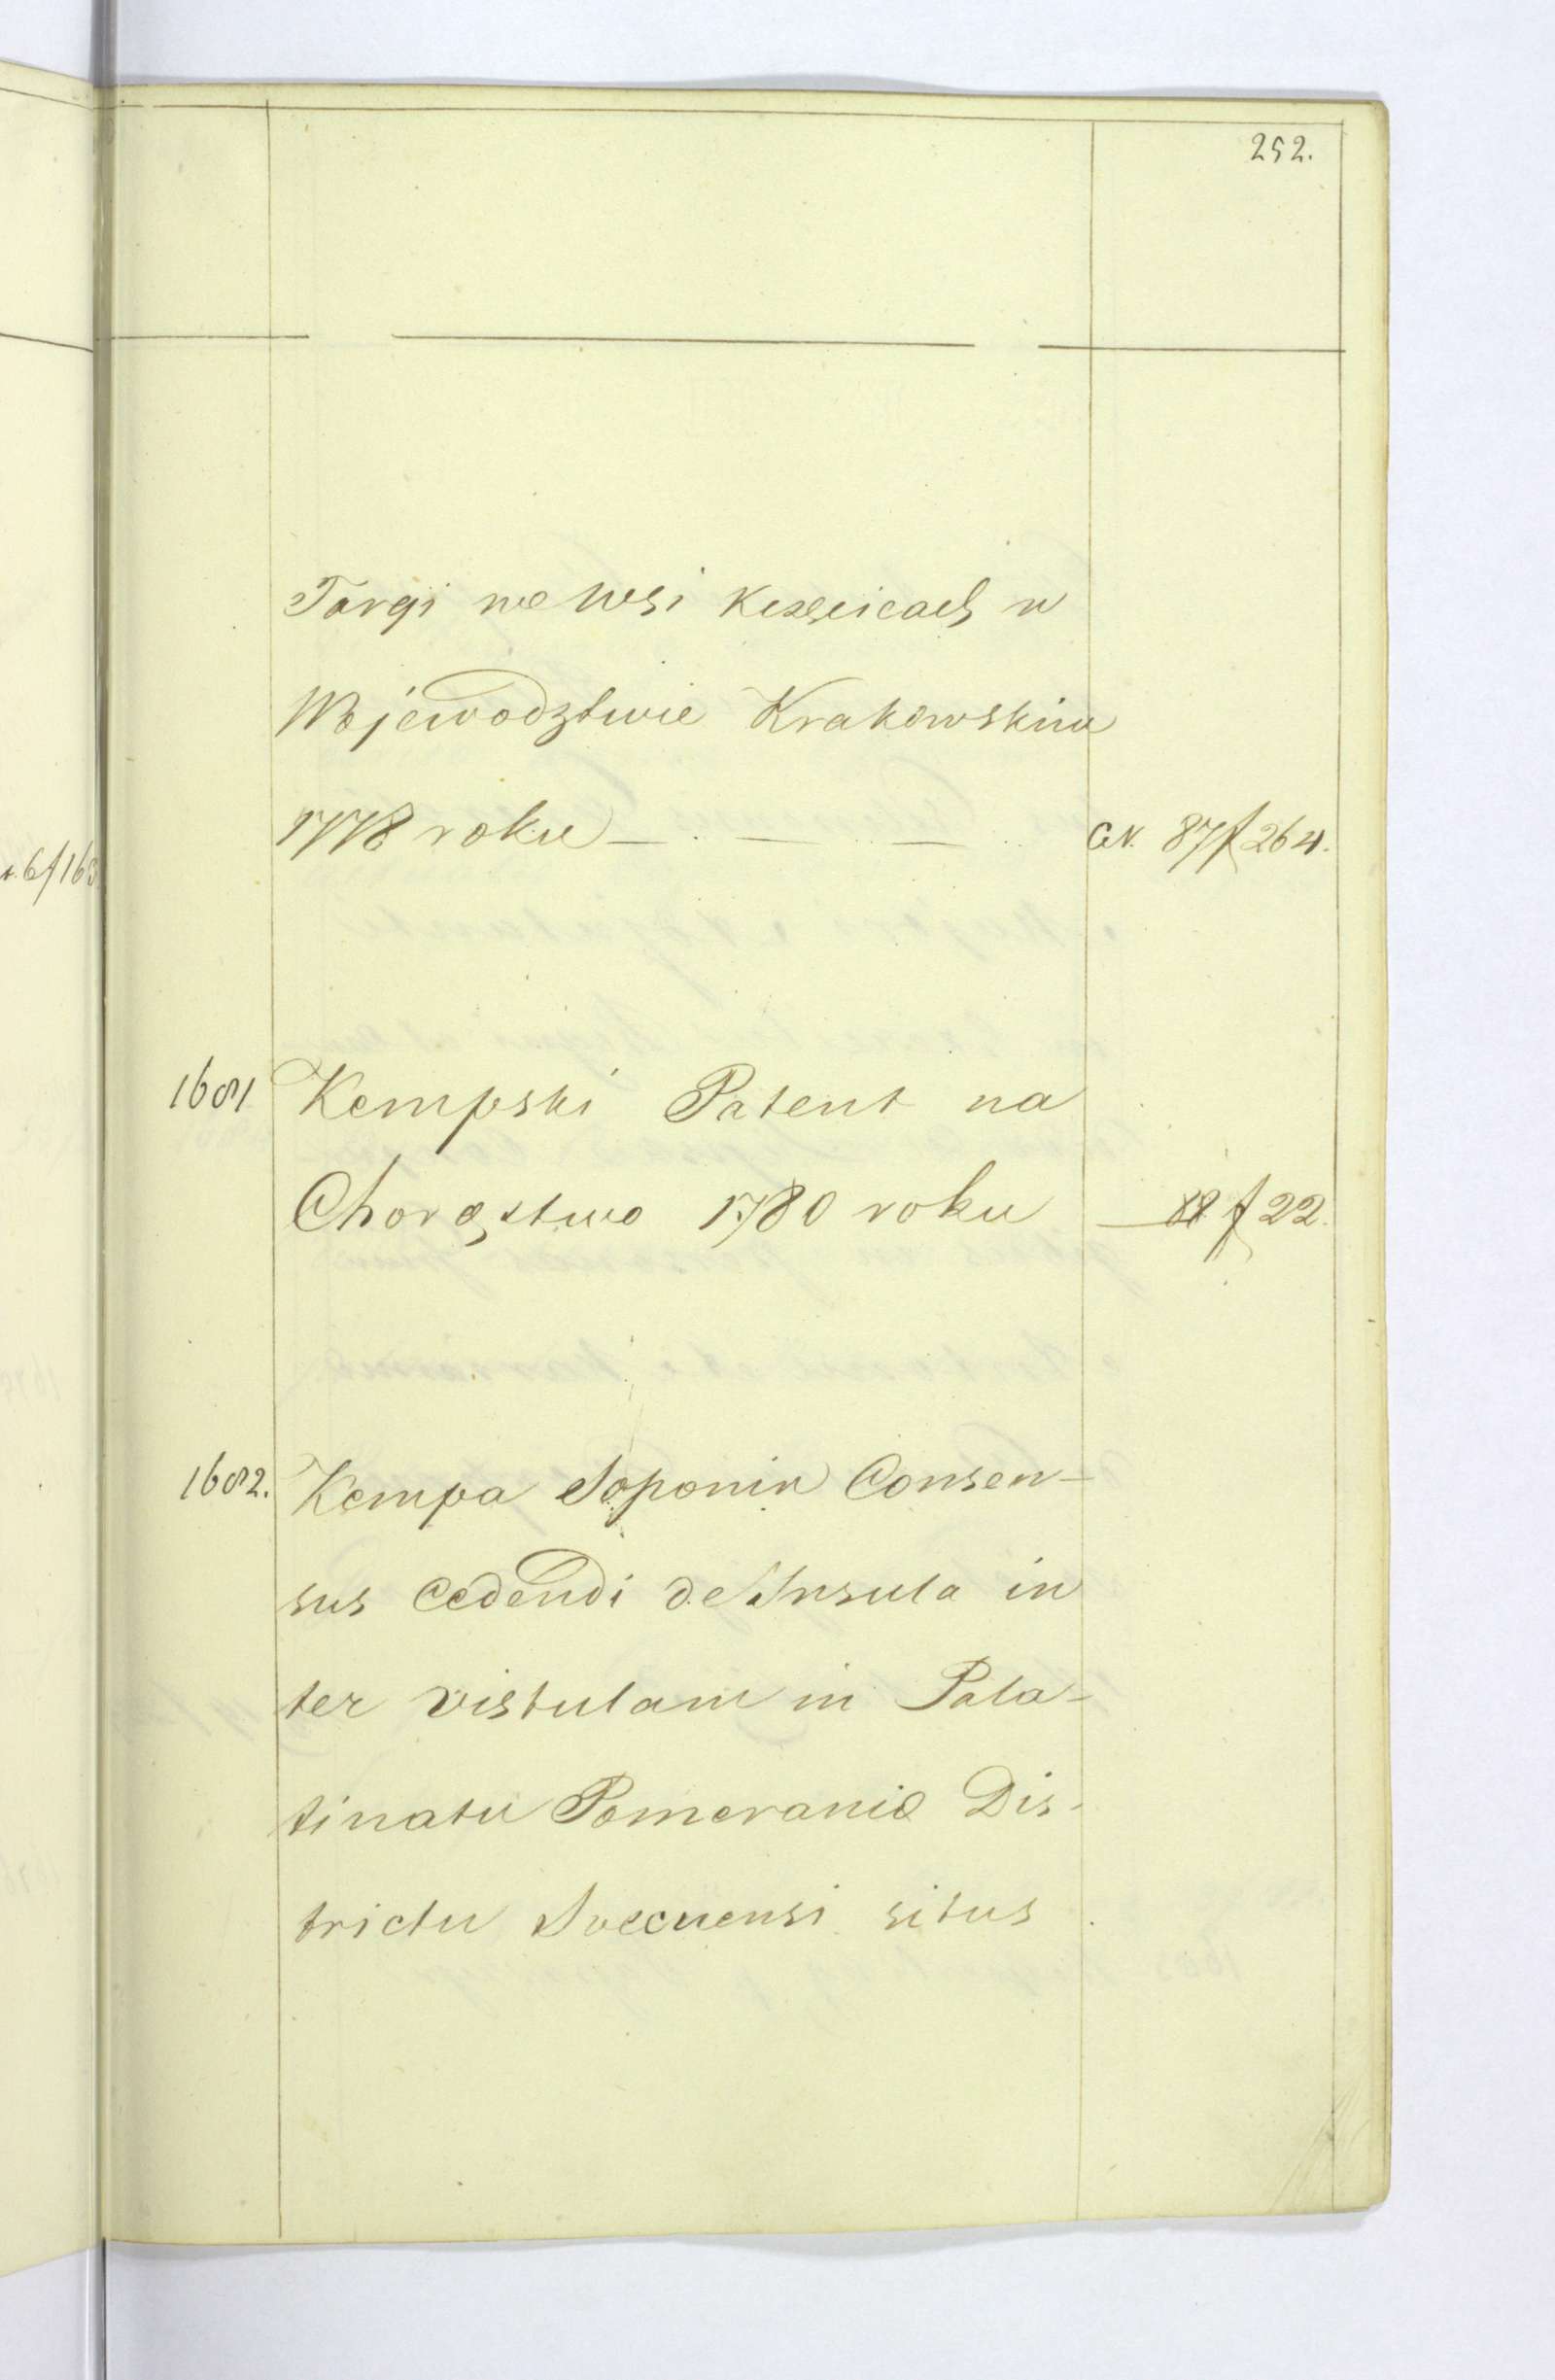 252.
Targi we Wsi w
Wojewodztwie Krakowskim
1778 roku — . — . . — . . G.N. 87 f 264.
1681 Kempski Patent na
Chorąstwo 1780 roku — 88 f 22.
1682. Kempa Soponin Consen-
sus Cedendi de Insula in
ter Vistulam in Pala-
tinatu Pomeranie Dis-
trictu Svecuensi situs